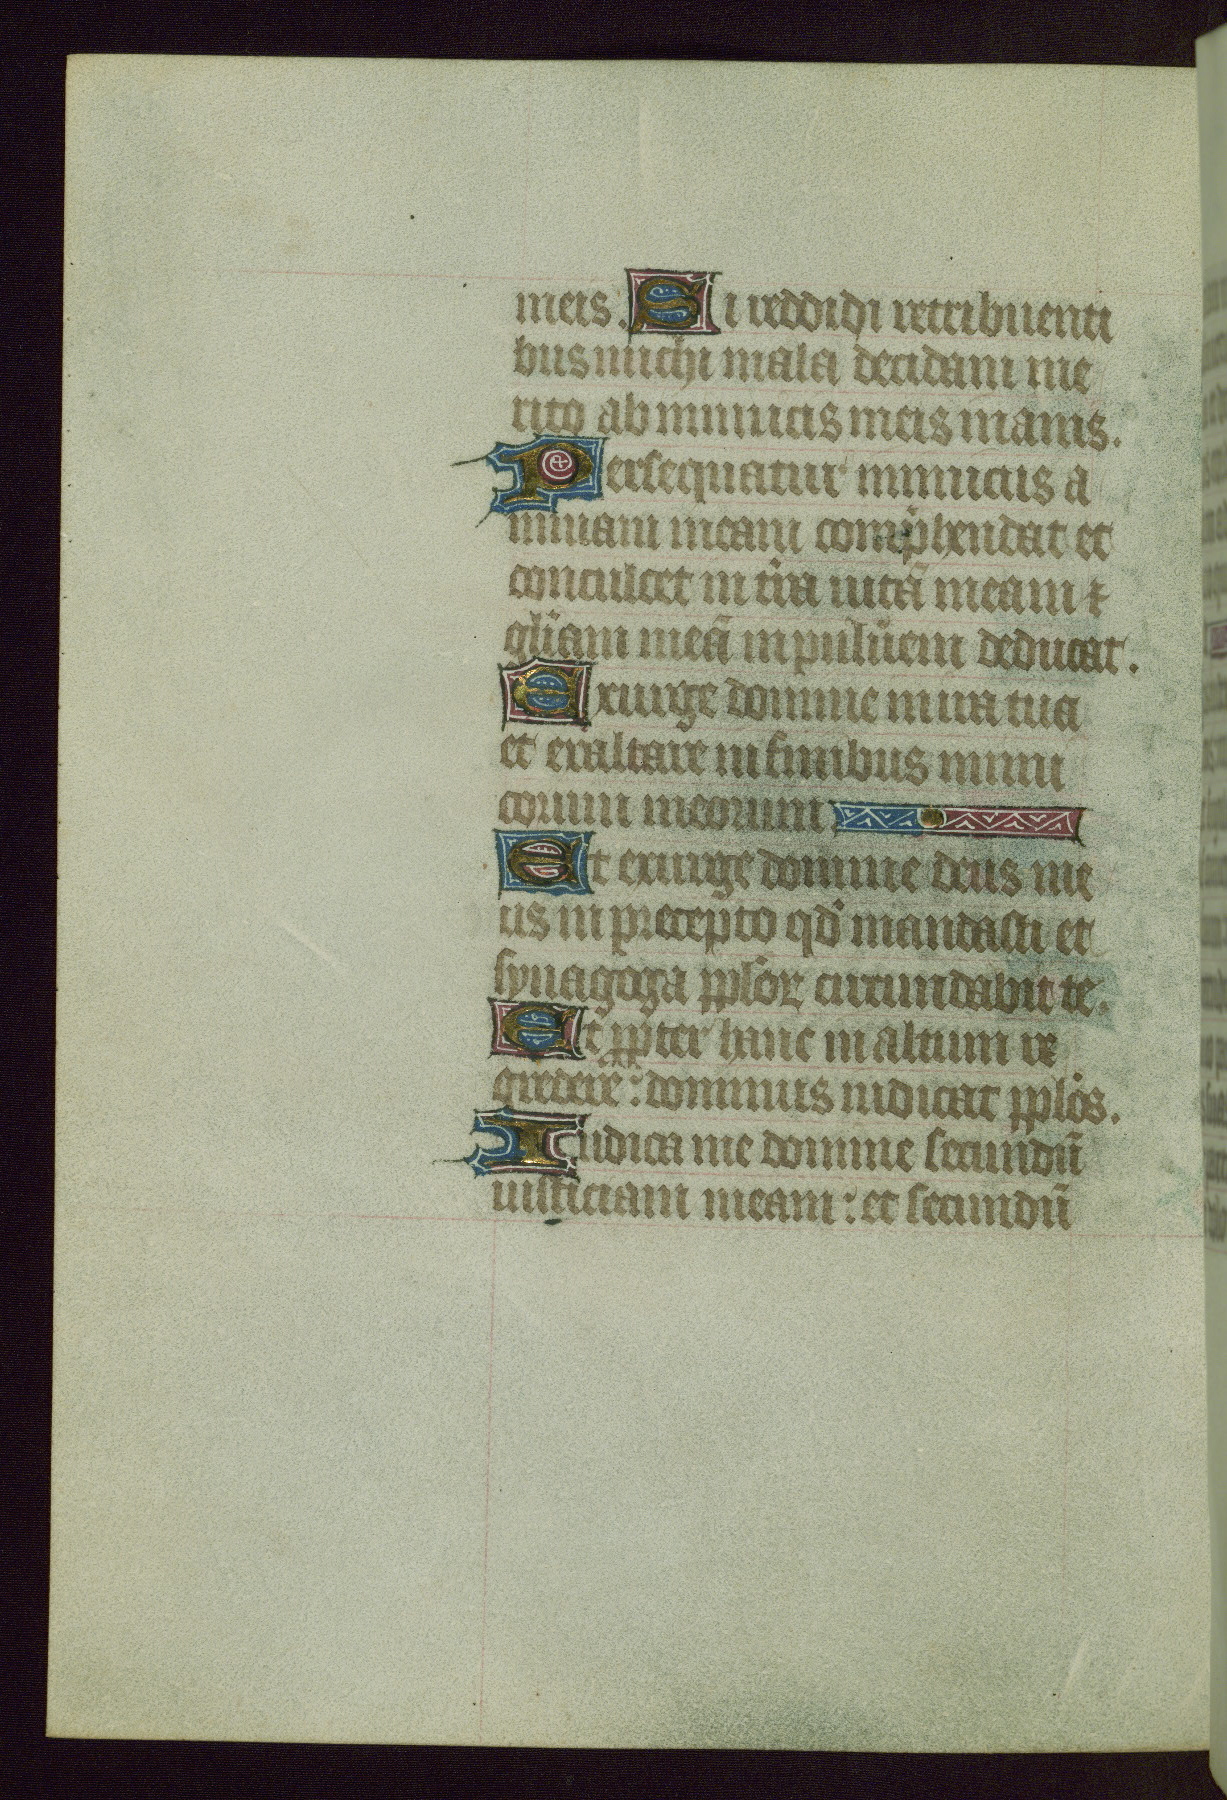 meis. Si reddidi retribuenti
bus michi mala decidam me
rito ab inimicis meis inanis.
Persequatur inimicus a
nimam meam comp̄hendat et
conculcet in tr̄ra uitā meam ⁊
glām meā in puluēm deducat.
Exurge domine in ira tua
et exaltare in finibus inimi
corum meorum
Et exurge domine deus me
us in precepto qd̄ mandasti et
synagoga pplōꝝ circundabit te.
Et ꝓpter hanc in altum re
gredere: dominus iudicat pplōs.
Iudica me domine secundū
iusticiam meam: et secundū